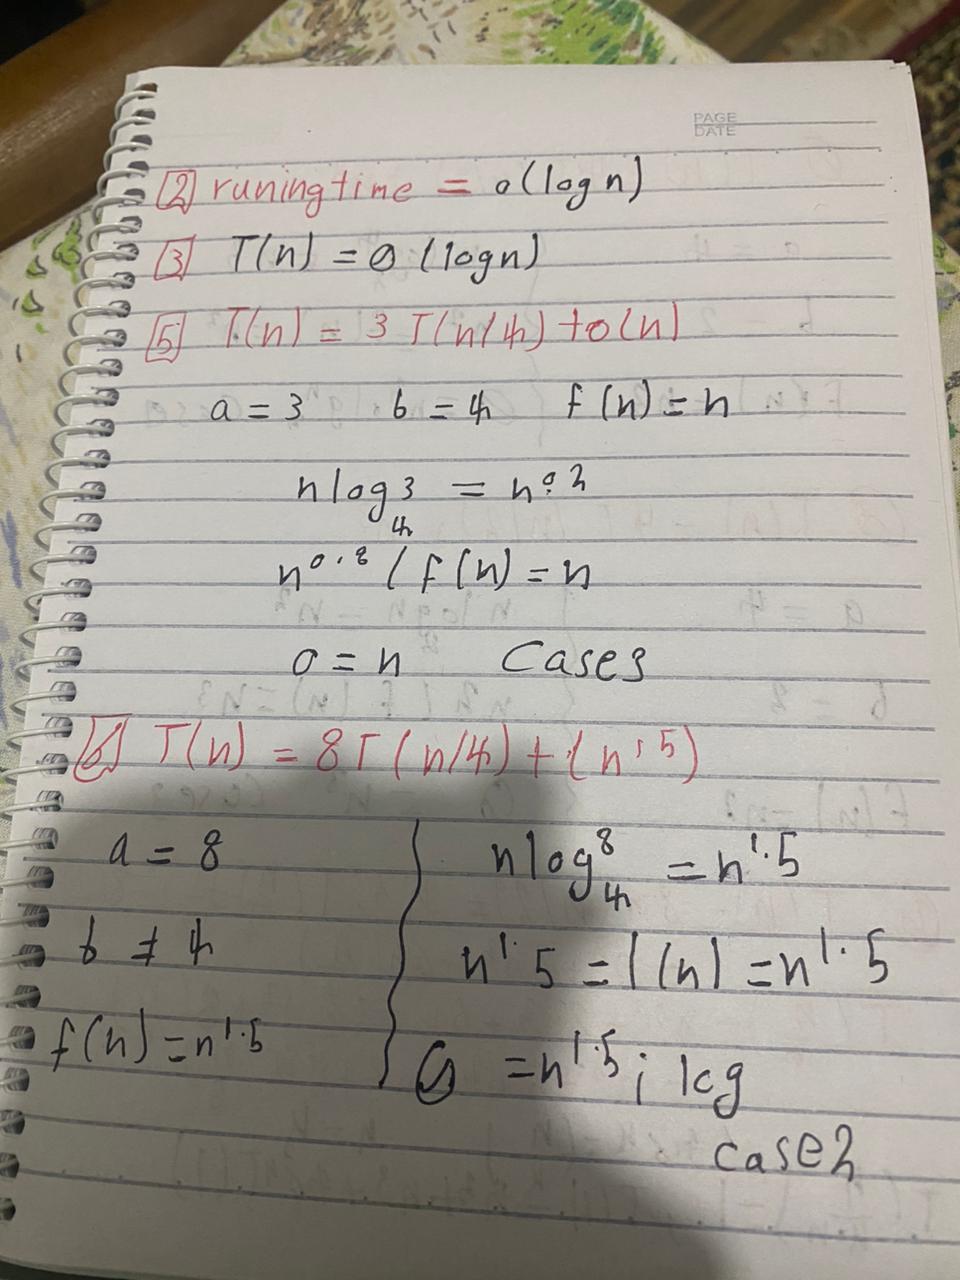 PAGE
DATE
[2] runing time = o(log n)
[3] T(n) = θ (logn)
[5] T(n) = 3 T(n/4) + o(n)
a = 3 b = 4 f(n) = n
n log 3 = n^0.2
4
n^0.8 / f(n) = n
o = n Case3
[6] T(n) = 8T(n/4) + (n^1.5)
a = 8
b = 4
f(n) = n^1.5
n log^8_4 = n^1.5
n^1.5 = f(n) = n^1.5
θ = n^1.5 ; log
case2